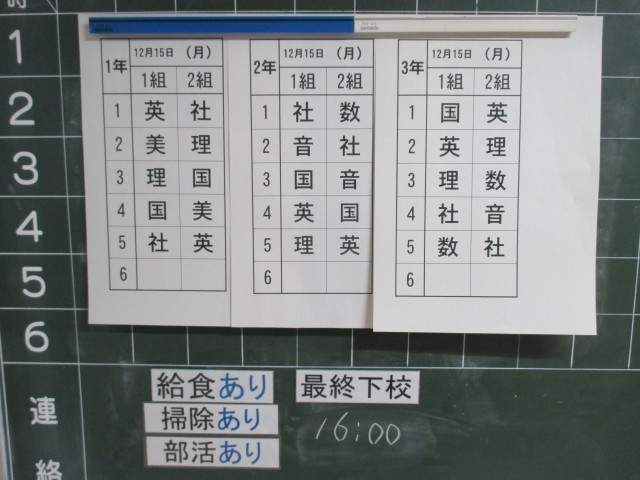 時
1
2
3
4
5
6
連
絡
1年 12月15日 (月)
1組 2組
1 英 社
2 美 理
3 理 国
4 国 美
5 社 英
6
2年 12月15日 (月)
1組 2組
1 社 数
2 音 社
3 国 音
4 英 国
5 理 英
6
3年 12月15日 (月)
1組 2組
1 国 英
2 英 理
3 理 数
4 社 音
5 数 社
6
給食あり
掃除あり
部活あり
最終下校
16:00